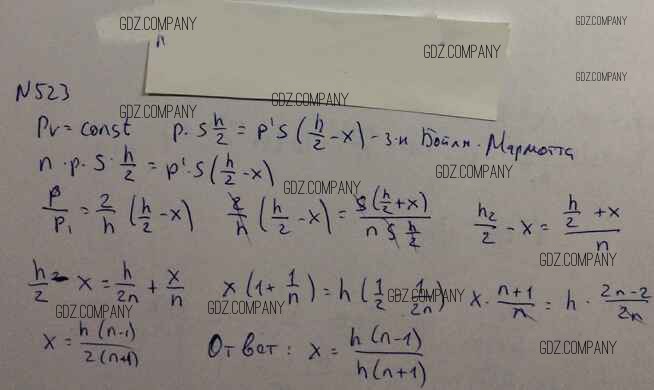 GDZ.COMPANY GDZ.COMPANY
п GDZ.COMPANY
GDZ.COMPANY
GDZ.COMPANY
N523 GDZ.COMPANY
Pv = const p·S h/2 = p'S (h/2 - x) - з-н Бойля-Мариотта
n·p·S·h/2 = p'·S(h/2 - x) GDZ.COMPANY GDZ.COMPANY
p/p₁ = 2/h (h/2 - x) 2/h (h/2 - x) = S(h/2 + x)/(n S h/2) h₂/2 - x = (h/2 + x)/n
GDZ.COMPANY GDZ.COMPANY
h/2 - x = h/2n + x/n x(1 + 1/n) = h(1/2 - 1/2n) x·(n+1)/n = h·(2n-2)/2n
GDZ.COMPANY GDZ.COMPANY GDZ.COMPANY
x = h(n-1)/2(n+1) Ответ: x = h(n-1)/h(n+1) GDZ.COMPANY